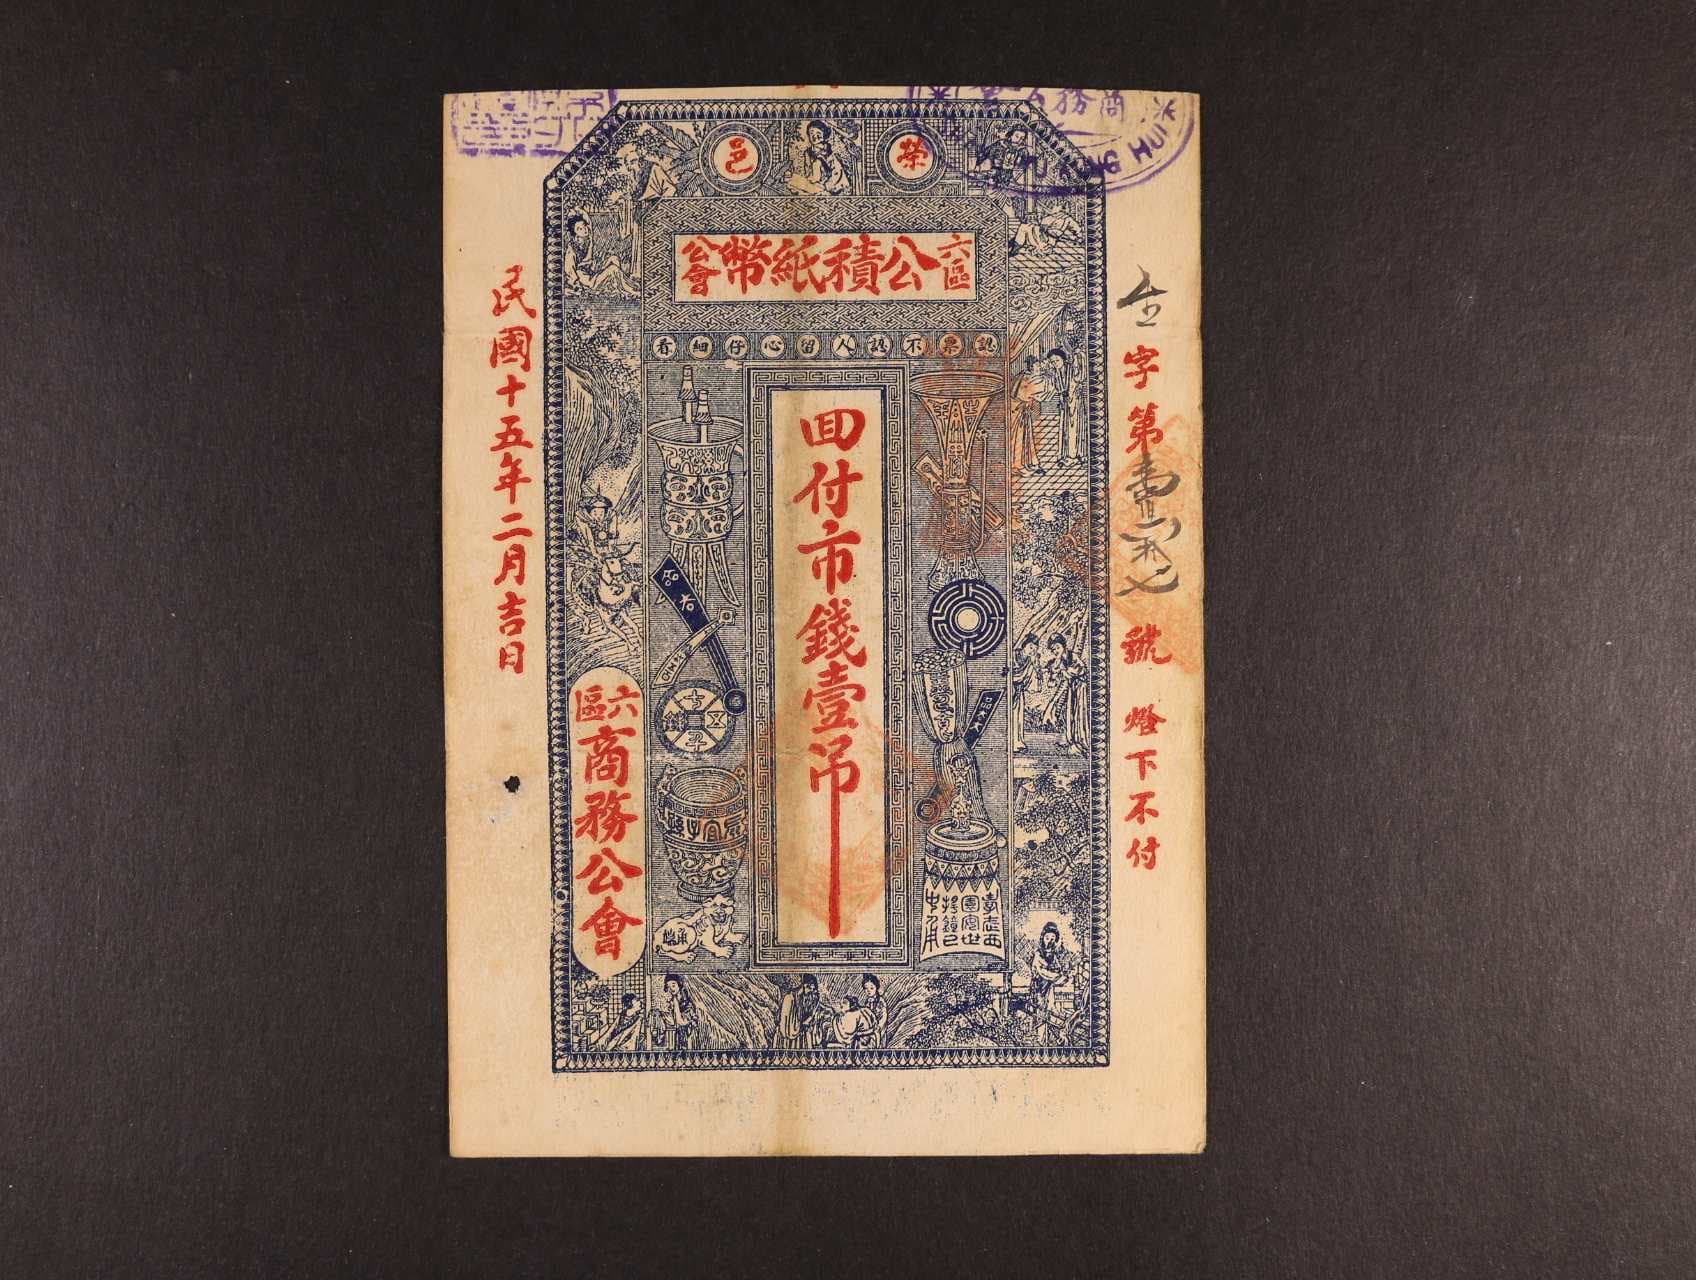 榮邑
六區公積紙幣公會
認票不認人留心仔細看
回付市錢壹吊
字第
號
燈下不付
民國十五年二月吉日
六區商務公會
商務
HUI